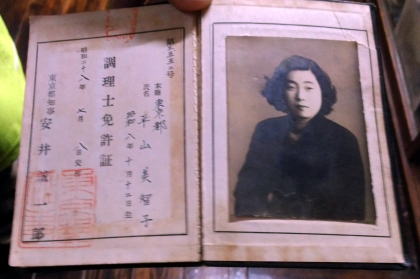 調理士免許証
本籍 東京都
氏名 山 美智子
昭和八年十月十二日生
昭和二十八年 月 日交付
東京都知事 安井 一郎